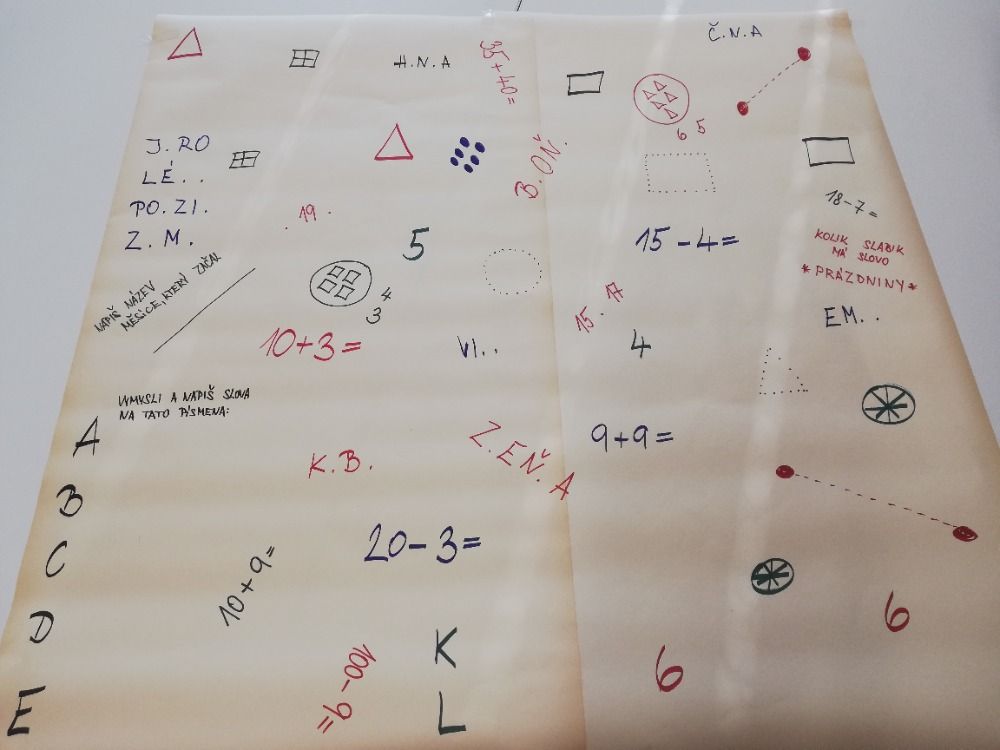 H.N.A
35+40=
Č.N.A
6 5
J.RO
LÉ..
PO.ZI.
Z.M.
B.OŇ.
18-7=
.19.
5
15-4=
KOLIK SLABIK
MÁ SLOVO
*PRÁZDNINY*
NAPIŠ NÁZEV
MĚSÍCE, KTERÝ ZAČAL
4
3
15.17
EM..
10+3=
VI..
4
VYMYSLI A NAPIŠ SLOVA
NA TATO PÍSMENA:
A
B
C
D
E
K.B.
Z.EŇ.A
9+9=
20-3=
10+9=
100-9=
K
L
6
6